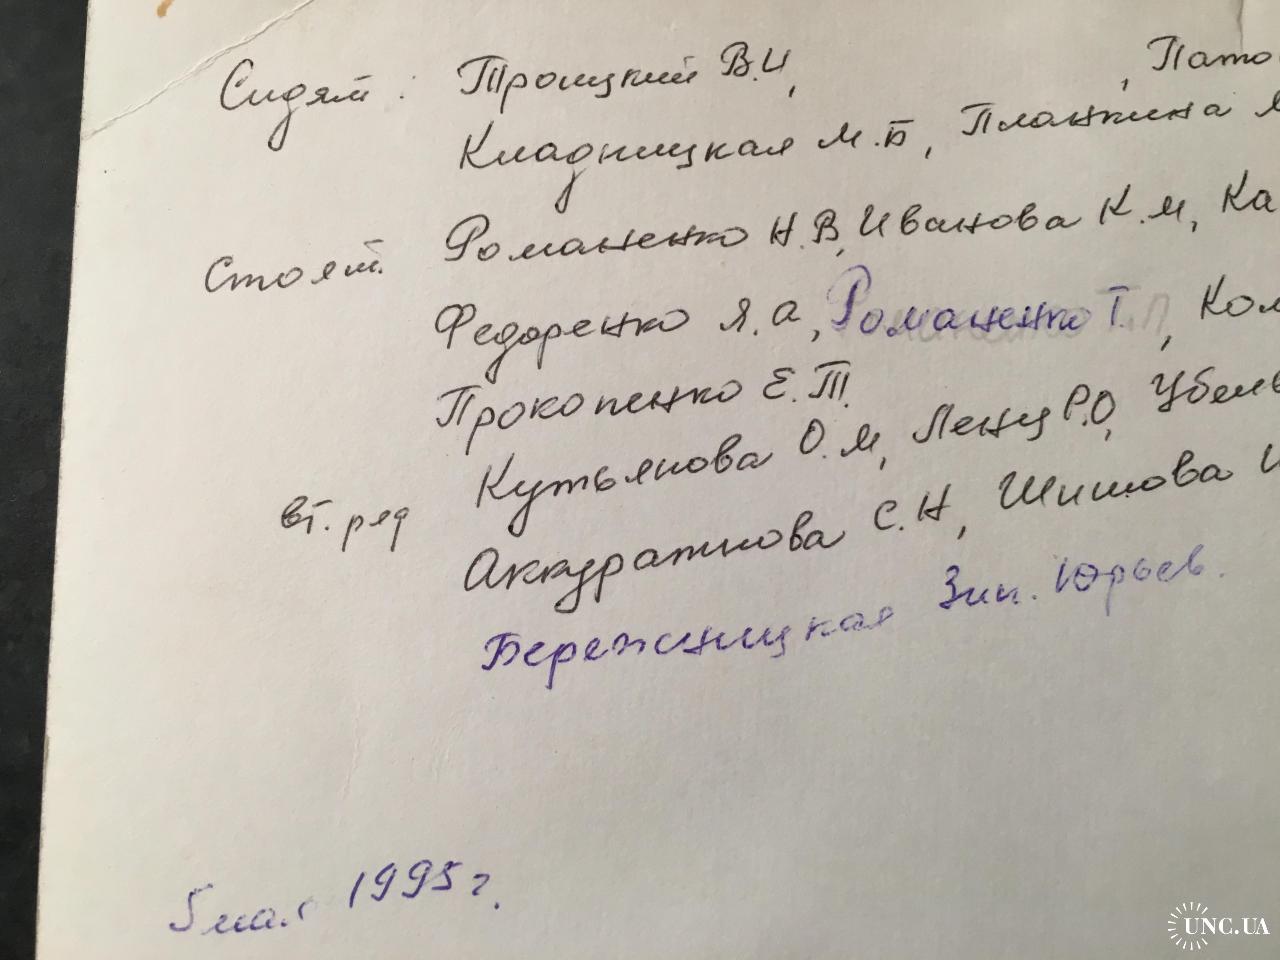 Сидят: Троицкий В.И, , Пато
Кладницкая М.Б, Планкина
Стоят. Романенко Н.В, Иванова К.М, Ка
Федоренко Я.А, Романенко Т. , Ком
Прокопенко Е.Т.
вт. ряд Кутьянова О.М, Ленц Р.О,
Аккуратнова С.Н, Шишова
Бережницкая Зин. Юрьев.
5 мая 1995 г.
UNC.UA